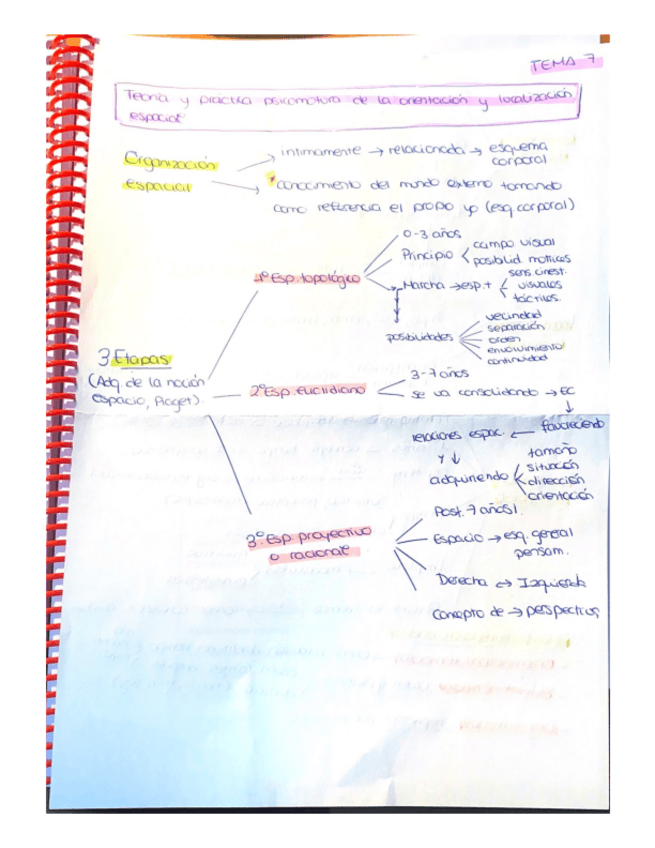 TEMA 7
Teoría y práctica psicomotora de la orientación y localización
espacial
Organización
espacial
íntimamente → relacionada → esquema
corporal
conocimiento del mundo externo tomando
como referencia el propio yo (esq. corporal)
3 Etapas
(Adq. de la noción
espacio, Piaget).
1º Esp. topológico
0-3 años
Principio
campo visual
posibilid. motrices
Marcha → esp. +
sens. cinest.
visuales
táctiles.
posibilidades
vecindad
separación
orden
envolvimiento
continuidad
2º Esp. euclidiano
3-7 años
se va consolidando → EC
↓
relaciones espac. ← favoreciendo
y ↓
adquiriendo
tamaño
situación
dirección
orientación
3º Esp. proyectivo
o racional
Post. 7 años
Espacio → esq. general
pensam.
Derecha ↔ Izquierda
Concepto de → perspectiva